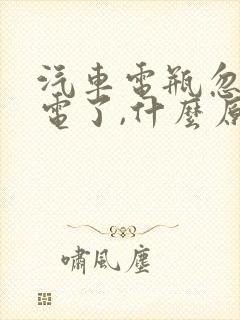 汽車電瓶忽
電了,什麼原
嘯風塵